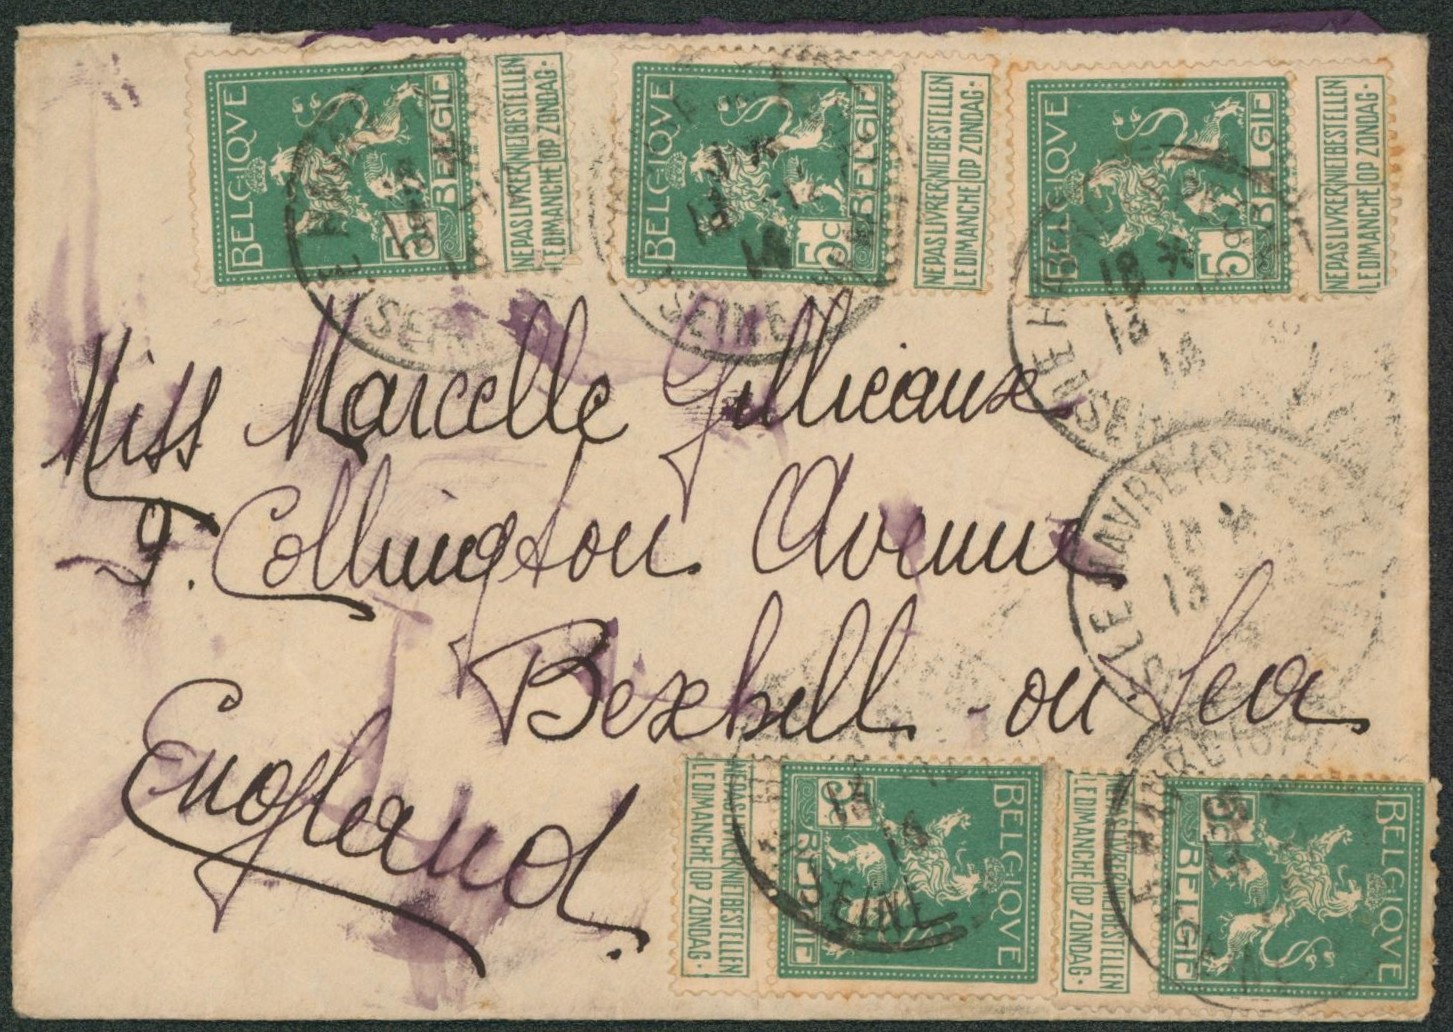 BELGIQVE BELGIË 5c NE PAS LIVRER LE DIMANCHE NIET BESTELLEN OP ZONDAG
BELGIQVE BELGIË 5c NE PAS LIVRER LE DIMANCHE NIET BESTELLEN OP ZONDAG
BELGIQVE BELGIË 5c NE PAS LIVRER LE DIMANCHE NIET BESTELLEN OP ZONDAG
SEINE
SEINE
LE HAVRE
Miss Marcelle Gillieaux
9. Collington Avenue
Bexhill - on Sea
England
LE HAVRE
BELGIQVE BELGIË 5c NE PAS LIVRER LE DIMANCHE NIET BESTELLEN OP ZONDAG
BELGIQVE BELGIË 5c NE PAS LIVRER LE DIMANCHE NIET BESTELLEN OP ZONDAG
SEINE